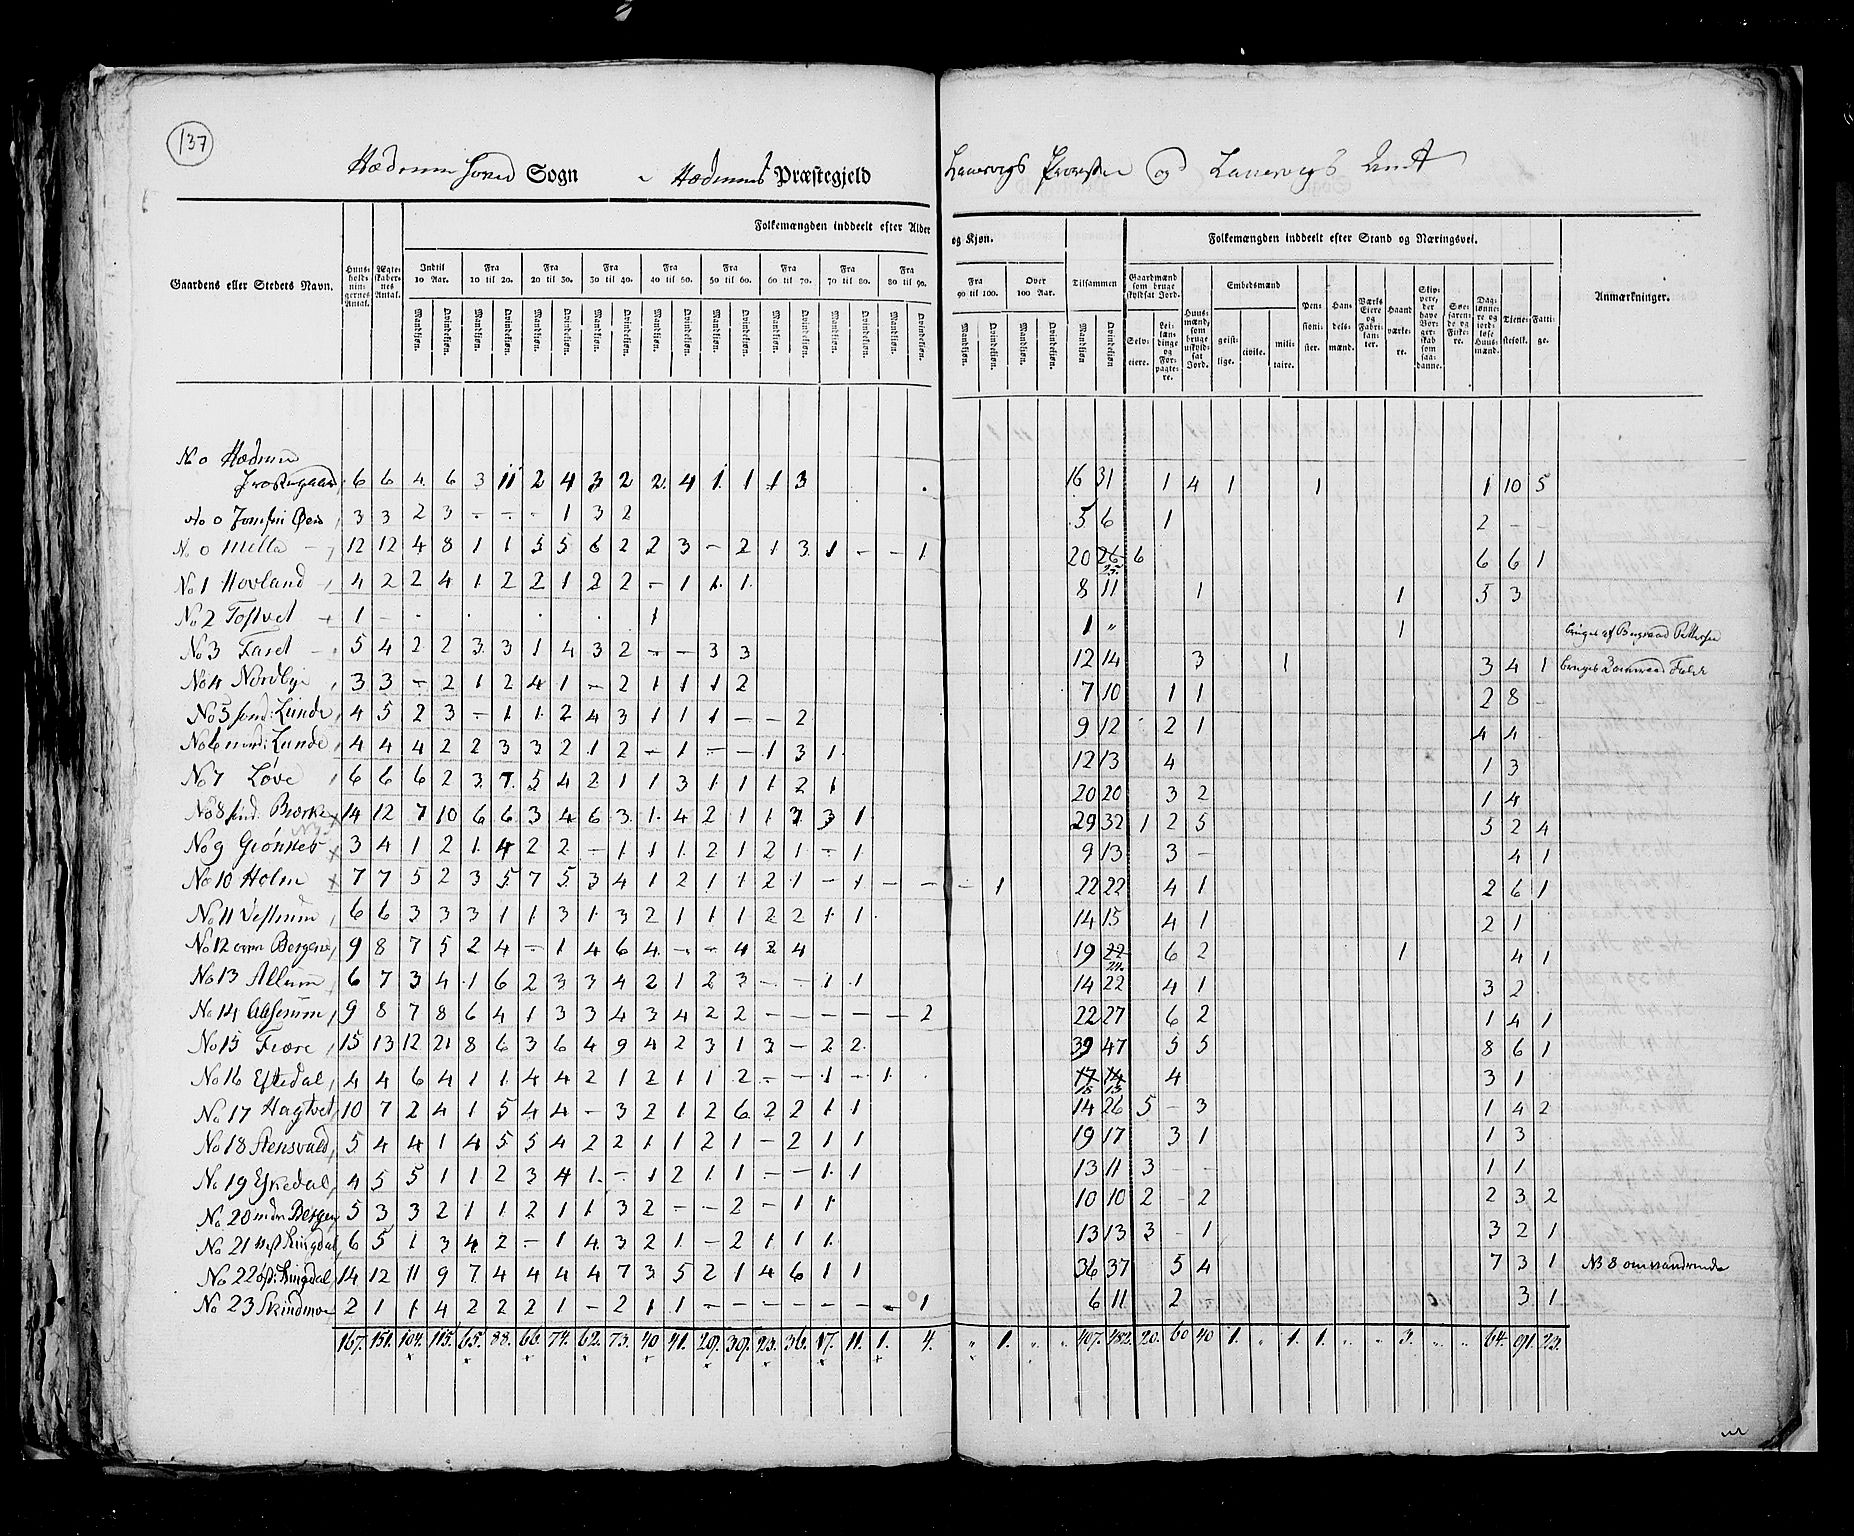 137
Hædrum Sogn i Hædrums Præstegjeld Laurvigs Provstie og Laurvigs Amt
Folkemængden inddeelt efter Alder og Kjøn.
Folkemængden inddeelt efter Stand og Næringsvei.
Gaardens eller Stedets Navn. Huusholdningernes Antal. Ægteskabernes Antal. Indtil 10 Aar. Fra 10 til 20. Fra 20 til 30. Fra 30 til 40. Fra 40 til 50. Fra 50 til 60. Fra 60 til 70. Fra 70 til 80. Fra 80 til 90. Fra 90 til 100. Over 100 Aar. Tilsammen
Mandkjøn. Qvindekjøn.
Gaardmænd som bruge skyldsat Jord. Selveiere. Leilændinge og Forpagtere. Huusmænd, som bruge uskyldsat Jord. Embedsmænd geistlige. civile. militaire. Pensionister. Handelsmænd. Værks Eiere og Fabrikanter. Haandværkere. Skippere, der have Borgerskab som saadanne. Søefarende og Fiskere. Daglønnere og jordløse Huusmænd. Tienestefolk. Fattige. Anmærkninger.
No 0 Hædrum
Præstegaard 6 6 4 6 3 11 2 4 3 2 2 4 1 1 1 3 16 31 1 4 1 1 1 10 5
No 0 3 3 2 3 - - - 1 3 2 5 6 1 2 - -
No 0 Mella 12 12 4 8 1 1 5 5 6 2 2 3 - 2 1 3 1 - - 1 20 26 25 6 6 6 1
No 1 Hovland 4 2 2 4 1 2 2 1 2 2 - 1 1 1 8 11 1 1 5 3
No 2 Tostvet 1 - 1 1 " 1
No 3 Faret 5 4 2 2 3 3 1 4 3 2 - - 3 3 12 14 3 1 3 4 1
No 4 Nordbye 3 3 - 2 1 2 4 1 - 2 1 1 1 2 7 10 1 1 2 8 -
No 5 sond: Lunde 4 5 2 3 - 1 1 2 4 3 1 1 1 - - 2 9 12 2 1 4 4
No 6 nord: Lunde 4 4 4 2 2 3 3 2 1 2 - 1 - - 1 3 1 12 13 4 1 3
No 7 Løve 6 6 6 2 3 7 5 4 2 1 1 3 1 1 1 2 1 20 20 3 2 1 4
No 8 sind. Bierke 14 12 7 10 6 6 3 4 6 3 1 4 2 1 1 7 3 1 29 32 1 2 5 5 2 4
No 9 Giønnes 3 4 1 2 1 4 2 2 - 1 1 1 2 1 2 1 - 1 9 13 3 - 4 1
No 10 Holm 7 7 5 2 3 5 7 5 3 4 1 2 1 1 2 1 - 1 - - - 1 22 22 4 1 2 6 1
No 11 Vestrum 6 6 3 3 3 1 1 3 1 3 2 1 1 1 2 2 1 1 14 15 4 1 2 1
No 12 øvre Bergene 9 8 7 5 2 4 - 1 4 6 4 - - 4 2 4 19 22 24 6 2 1 4 1
No 13 Allum 6 7 3 4 1 6 2 3 3 4 2 1 2 3 - - 1 1 14 22 4 1 3 2
No 14 Aasrum 9 8 7 8 6 4 1 3 3 4 3 4 2 2 - - - - - 2 22 27 6 2 1 4 1
No 15 Fiære 15 13 12 21 8 6 3 6 4 9 4 2 3 1 3 - 2 2 39 47 5 5 8 6 1
No 16 Eftedal 4 4 6 4 1 1 4 4 2 1 2 1 1 2 - - 1 - 1 17 14 15 13 4 3 1
No 17 Hagtvet 10 7 2 4 1 5 4 4 - 3 2 1 2 6 2 2 1 1 14 26 5 - 3 1 4 2
No 18 Stensvald 5 4 4 1 4 5 5 4 2 2 1 1 2 1 - 2 1 1 19 17 3 1 1 3
No 19 Eskedal 4 5 5 1 1 2 3 4 1 - 1 2 1 1 - - 1 1 13 11 3 - - 1 1
No 20 nedre Bergen 5 3 3 2 1 1 2 1 1 3 2 - - 2 - 1 1 10 10 2 - 2 2 3 2
No 21 vest Ringdal 6 5 1 3 4 2 - 1 4 3 2 1 - 2 1 1 1 13 13 3 - 1 3 2 1
No 22 øst: Ringdal 14 12 11 9 7 4 4 4 4 7 3 5 2 1 4 6 1 1 36 37 5 4 7 3 1 NB 8 omvandrende
No 23 Skindmoe 2 1 1 4 2 2 2 1 - 2 1 1 - - - - - - - 1 6 11 2 - 3 1
167. 151. 104. 115. 65. 88. 66. 74. 62. 73. 40 41. 29. 39. 23. 36. 17. 11. 1. 4. " 1. " " 407. 482. 20. 60 40 1. " 1. 1. " " 3. " " 64. 91. 23.